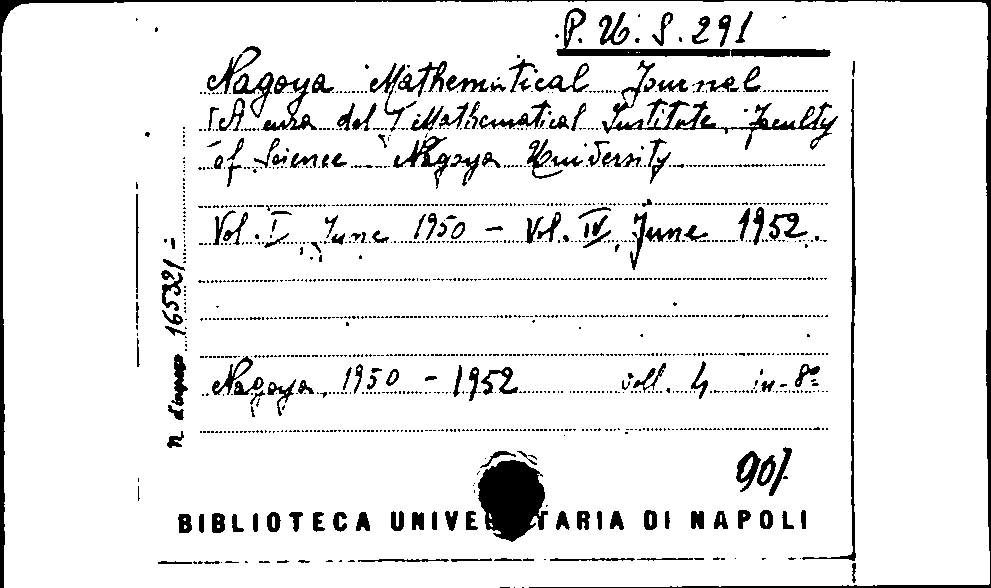 P. U. S. 291
Nagoya Mathematical Journal
[A cura del] Mathematical Institute, Faculty
of Science. Nagoya University.
Vol. I, June 1950 - Vol. IV, June 1952.
n. d'ingresso 165321 -
Nagoya, 1950 - 1952 voll. 4. in-8º
907
BIBLIOTECA UNIVER TARIA DI NAPOLI